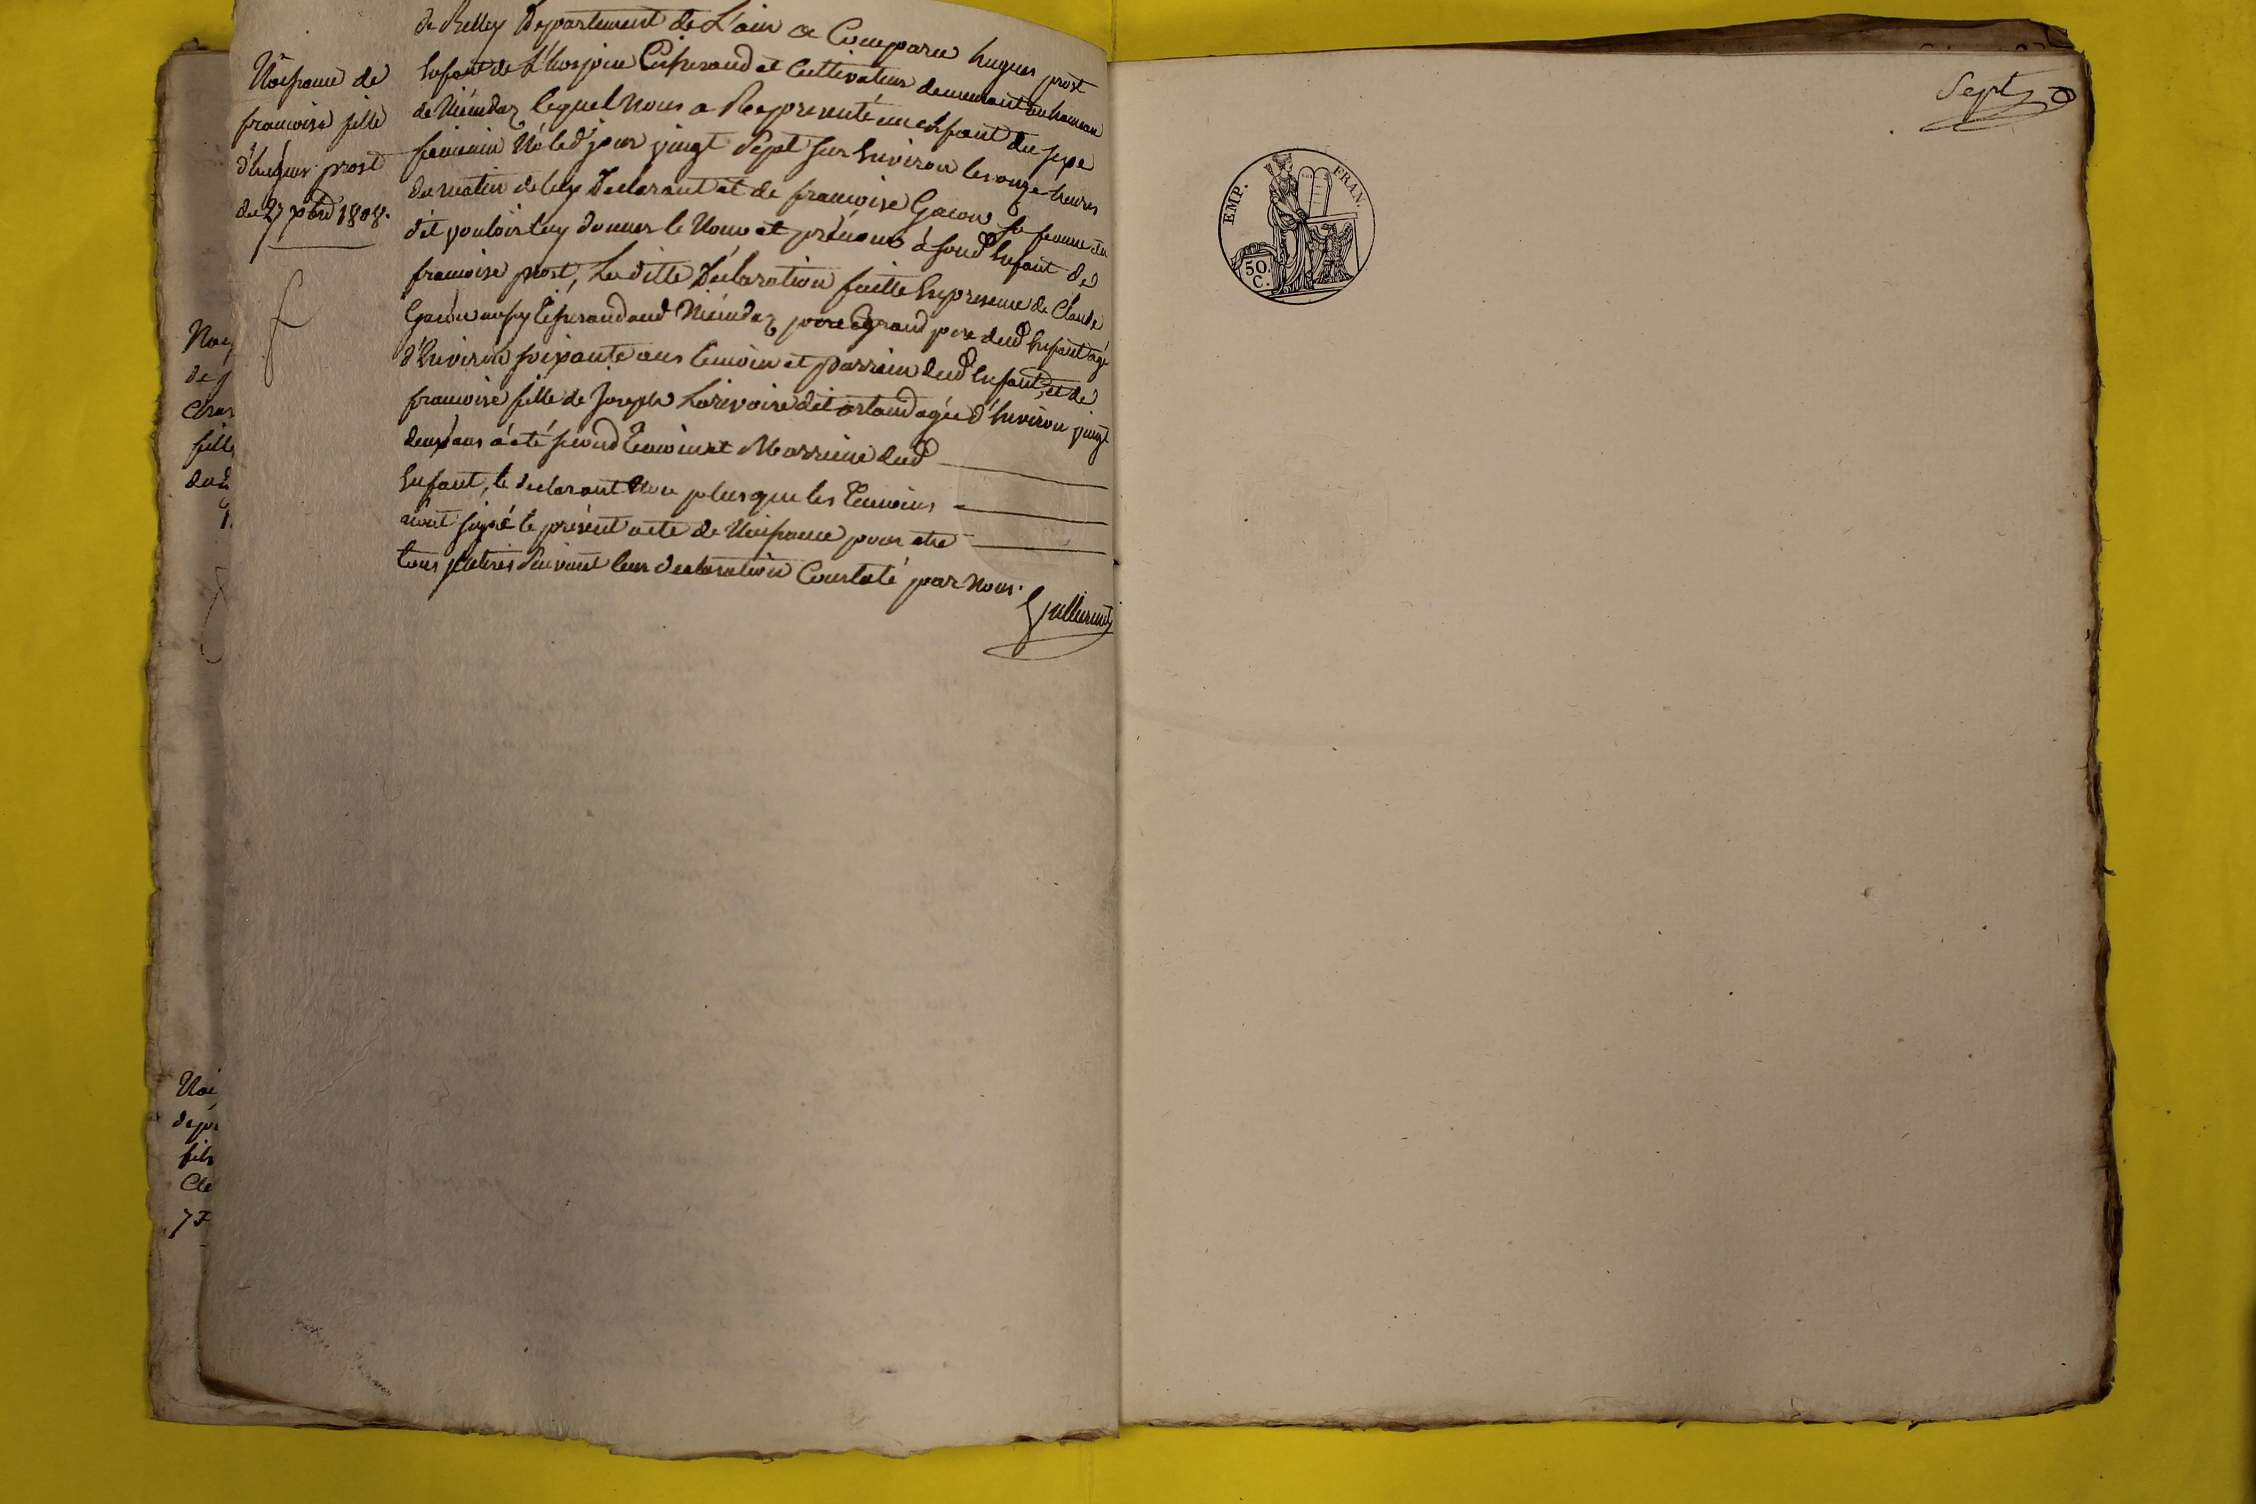 Naissance de
francoise fille
d'hugues prost
du 27 xbre 1808.
de Belley Departement de L'ain a Comparu hugues prost
Enfant de L'hospice Tisserand et Cultivateur demeurant au hameau
de lequel Nous a Representé un enfant du sexe
feminin Né led jour vingt Sept sur Environ les onze heures
du matin de luy Declarant et de francoise Gacon Sa femme et a
dit vouloir luy donner le Nom et prénom à sond Enfant de
francoise prost, La ditte Déclaration faitte En presence de Claude
Gacon aussy Tisserand aud pere grand pere dud Enfant agé
d'Environ soixante ans temoin et parrain dud Enfant, et de
francoise fille de Joseph Larivoire dit agée d'Environ vingt
deux ans a été second Temoin et Marraine dud
Enfant, le declarant Non plus que les Temoins
n'ont signé le présent acte de Naissance pour etre
tous illetirés Suivant leur declaration Constaté par Nous.
Sept
EMP. FRAN.
50.
C.